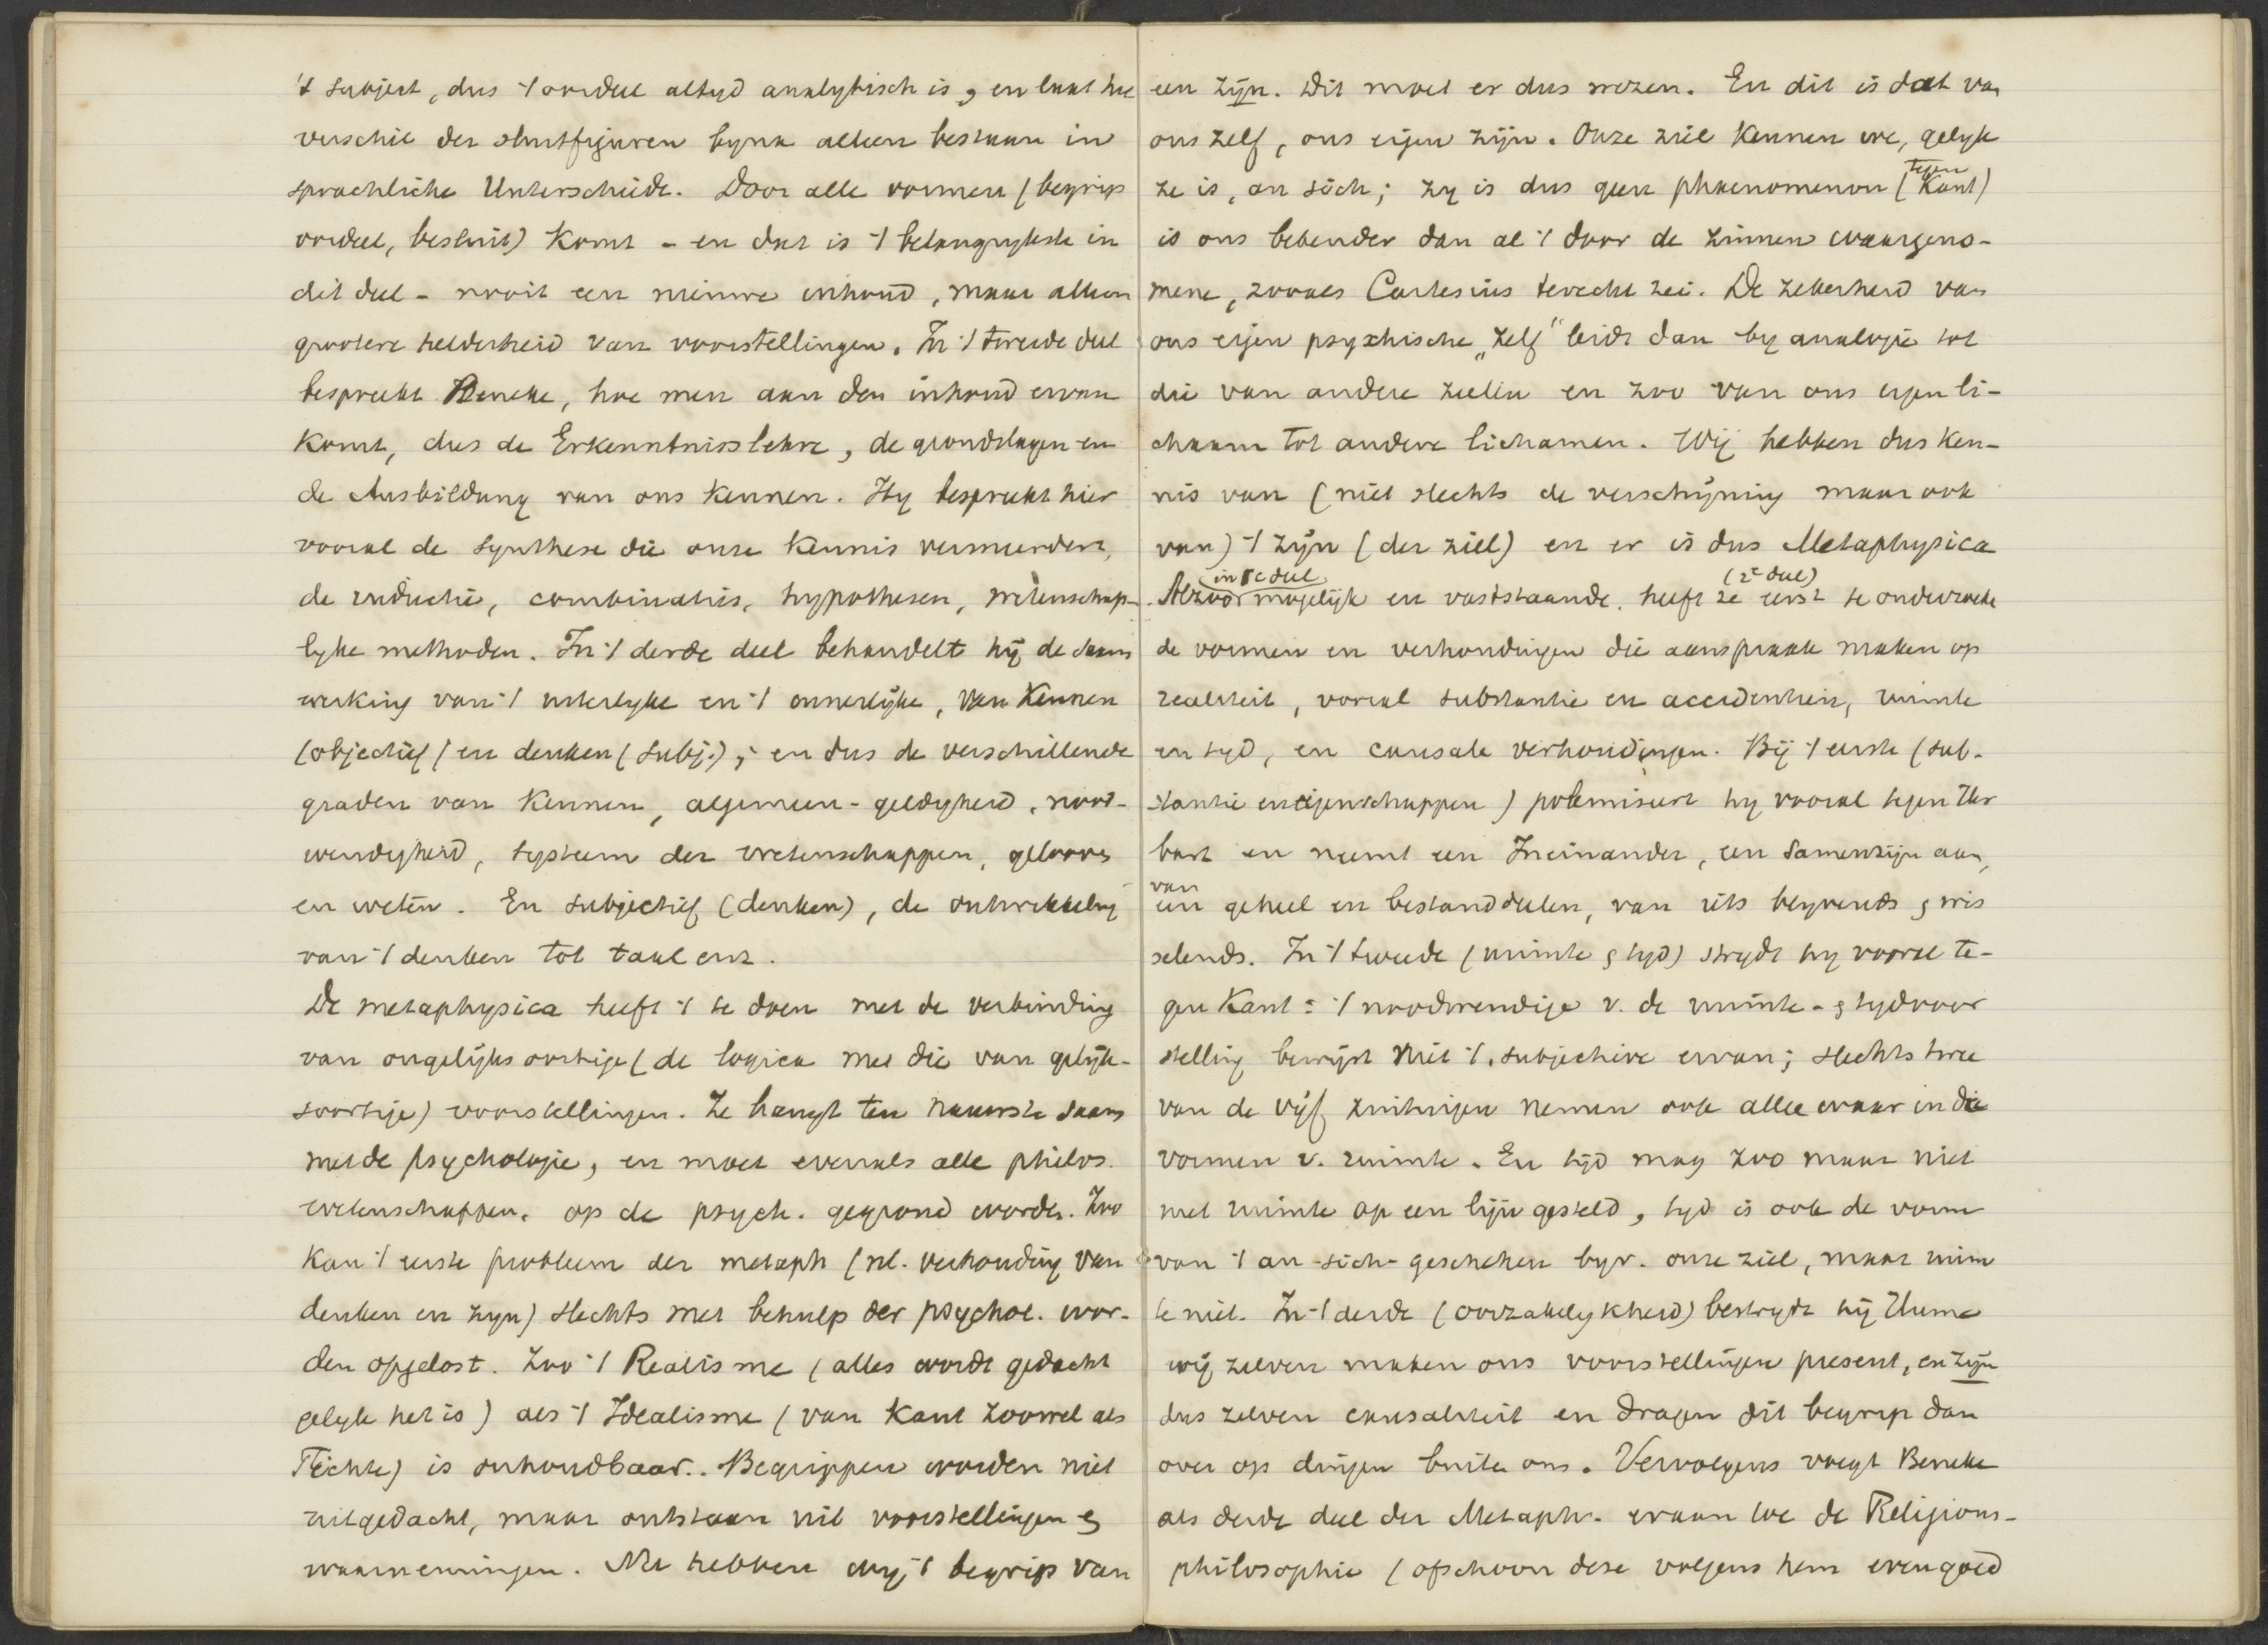 't subject, dus 't oordeel altyd analytisch is, en laat het
verschil der sluitfiguren byna alleen bestaan in
sprachliche Unterschiede. Door alle vormen (begrip
oordeel, besluit) komt - en dat is 't belangrykste in
dit deel - nooit een nieuwe inhoud, maar alleen
grootere helderheid van voorstellingen. In 't tweede deel
bespreekt Beneke, hoe men aan den inhoud ervan
komt, dus de Erkenntnisslehre, de grondslagen en
de Ausbildung van ons kennen. Hy bespreekt hier
vooral de synthese die onze kennis vermeerdert,
de inductie, combinatie, hypothesen, wetenschap-
lyke methoden. In 't derde deel behandelt hij de saam
werking van 't uiterlyke en 't innerlijke, van kennen
(objectief) en denken (subj.); en dus de verschillende
graden van kennen, algemeen-geldigheid, nood-
wendigheid, systeem der wetenschappen, gelooven
en weten. En subjectief (denken), de ontwikkeling
van 't denken tot taal enz.
De metaphysica heeft 't te doen met de verbinding
van ongelijksoortige (de logica met die van gelijk-
soortige) voorstellingen. Ze hangt ten nauwste saam
met de psychologie, en moet evenals alle philos.
wetenschappen, op de psych. gegrond worden. Zoo
kan 't eerste probleem der metaph (nl. verhouding van
denken en zyn) slechts met behulp der psychol. wor-
den opgelost. Zoo 't Realisme (alles wordt gedacht
gelyk het is) als 't Idealisme (van Kant zoowel als
Fichte) is onhoudbaar. Begrippen worden niet
uitgedacht, maar ontstaan uit voorstellingen &
waarnemingen. Nu hebben wij 't begrip van
een zijn. Dit moet er dus wezen. En dit is dat van
ons zelf, ons eigen zijn. Onze ziel kennen we, gelyk
ze is, an sich; zy is dus geen phaenomenon (tegen Kant)
is ons bekender dan al 't door de zinnen waargeno-
mene, zooals Cartesius terecht zei. De zekerheid van
ons eigen psychische „zelf" leidt dan by analogie tot
die van andere zielen en zoo van ons eigen li-
chaam tot andere lichamen. Wij hebben dus ken-
nis van (niet slechts de verschijning maar ook
van) 't zijn (der ziel) en er is dus Metaphysica
(in 1e deel) (2e deel)
Alzoo mogelijk en vaststaande, heeft ze eerst te onderzoeke
de vormen en verhoudingen die aanspraak maken op
realiteit, vooral substantie en accidentien, ruimte
en tyd, en causale verhoudingen. Bij 't eerste (sub-
stantie en eigenschappen) polemiseert hy vooral tegen Her
bart en neemt een Ineinander, een samenzijn aan,
van
een geheel en bestanddeelen, van iets blyvends & wis
selends. In 't tweede (ruimte & tyd) strydt hy vooral te-
gen Kant: 't noodwendige v. de ruimte- & tydvoor
stelling bewijst niet 't subjectieve ervan; slechts twee
van de vijf zintuigen nemen ook alles waar in die
vormen v. ruimte. En tijd mag zoo maar niet
met ruimte op een lijn gesteld, tyd is ook de vorm
van 't an-sich-geschehen byv. onze ziel, maar ruim
te niet. In 't derde (oorzakelykheid) bestrydt hij Hume
wij zelven maken ons voorstellingen present, en zijn
dus zelven causaliteit en dragen dit begrip dan
over op dingen buiten ons. Vervolgens voegt Beneke
als derde deel der Metaph. eraan toe de Religions-
philosophie (ofschoon deze volgens hem evengoed